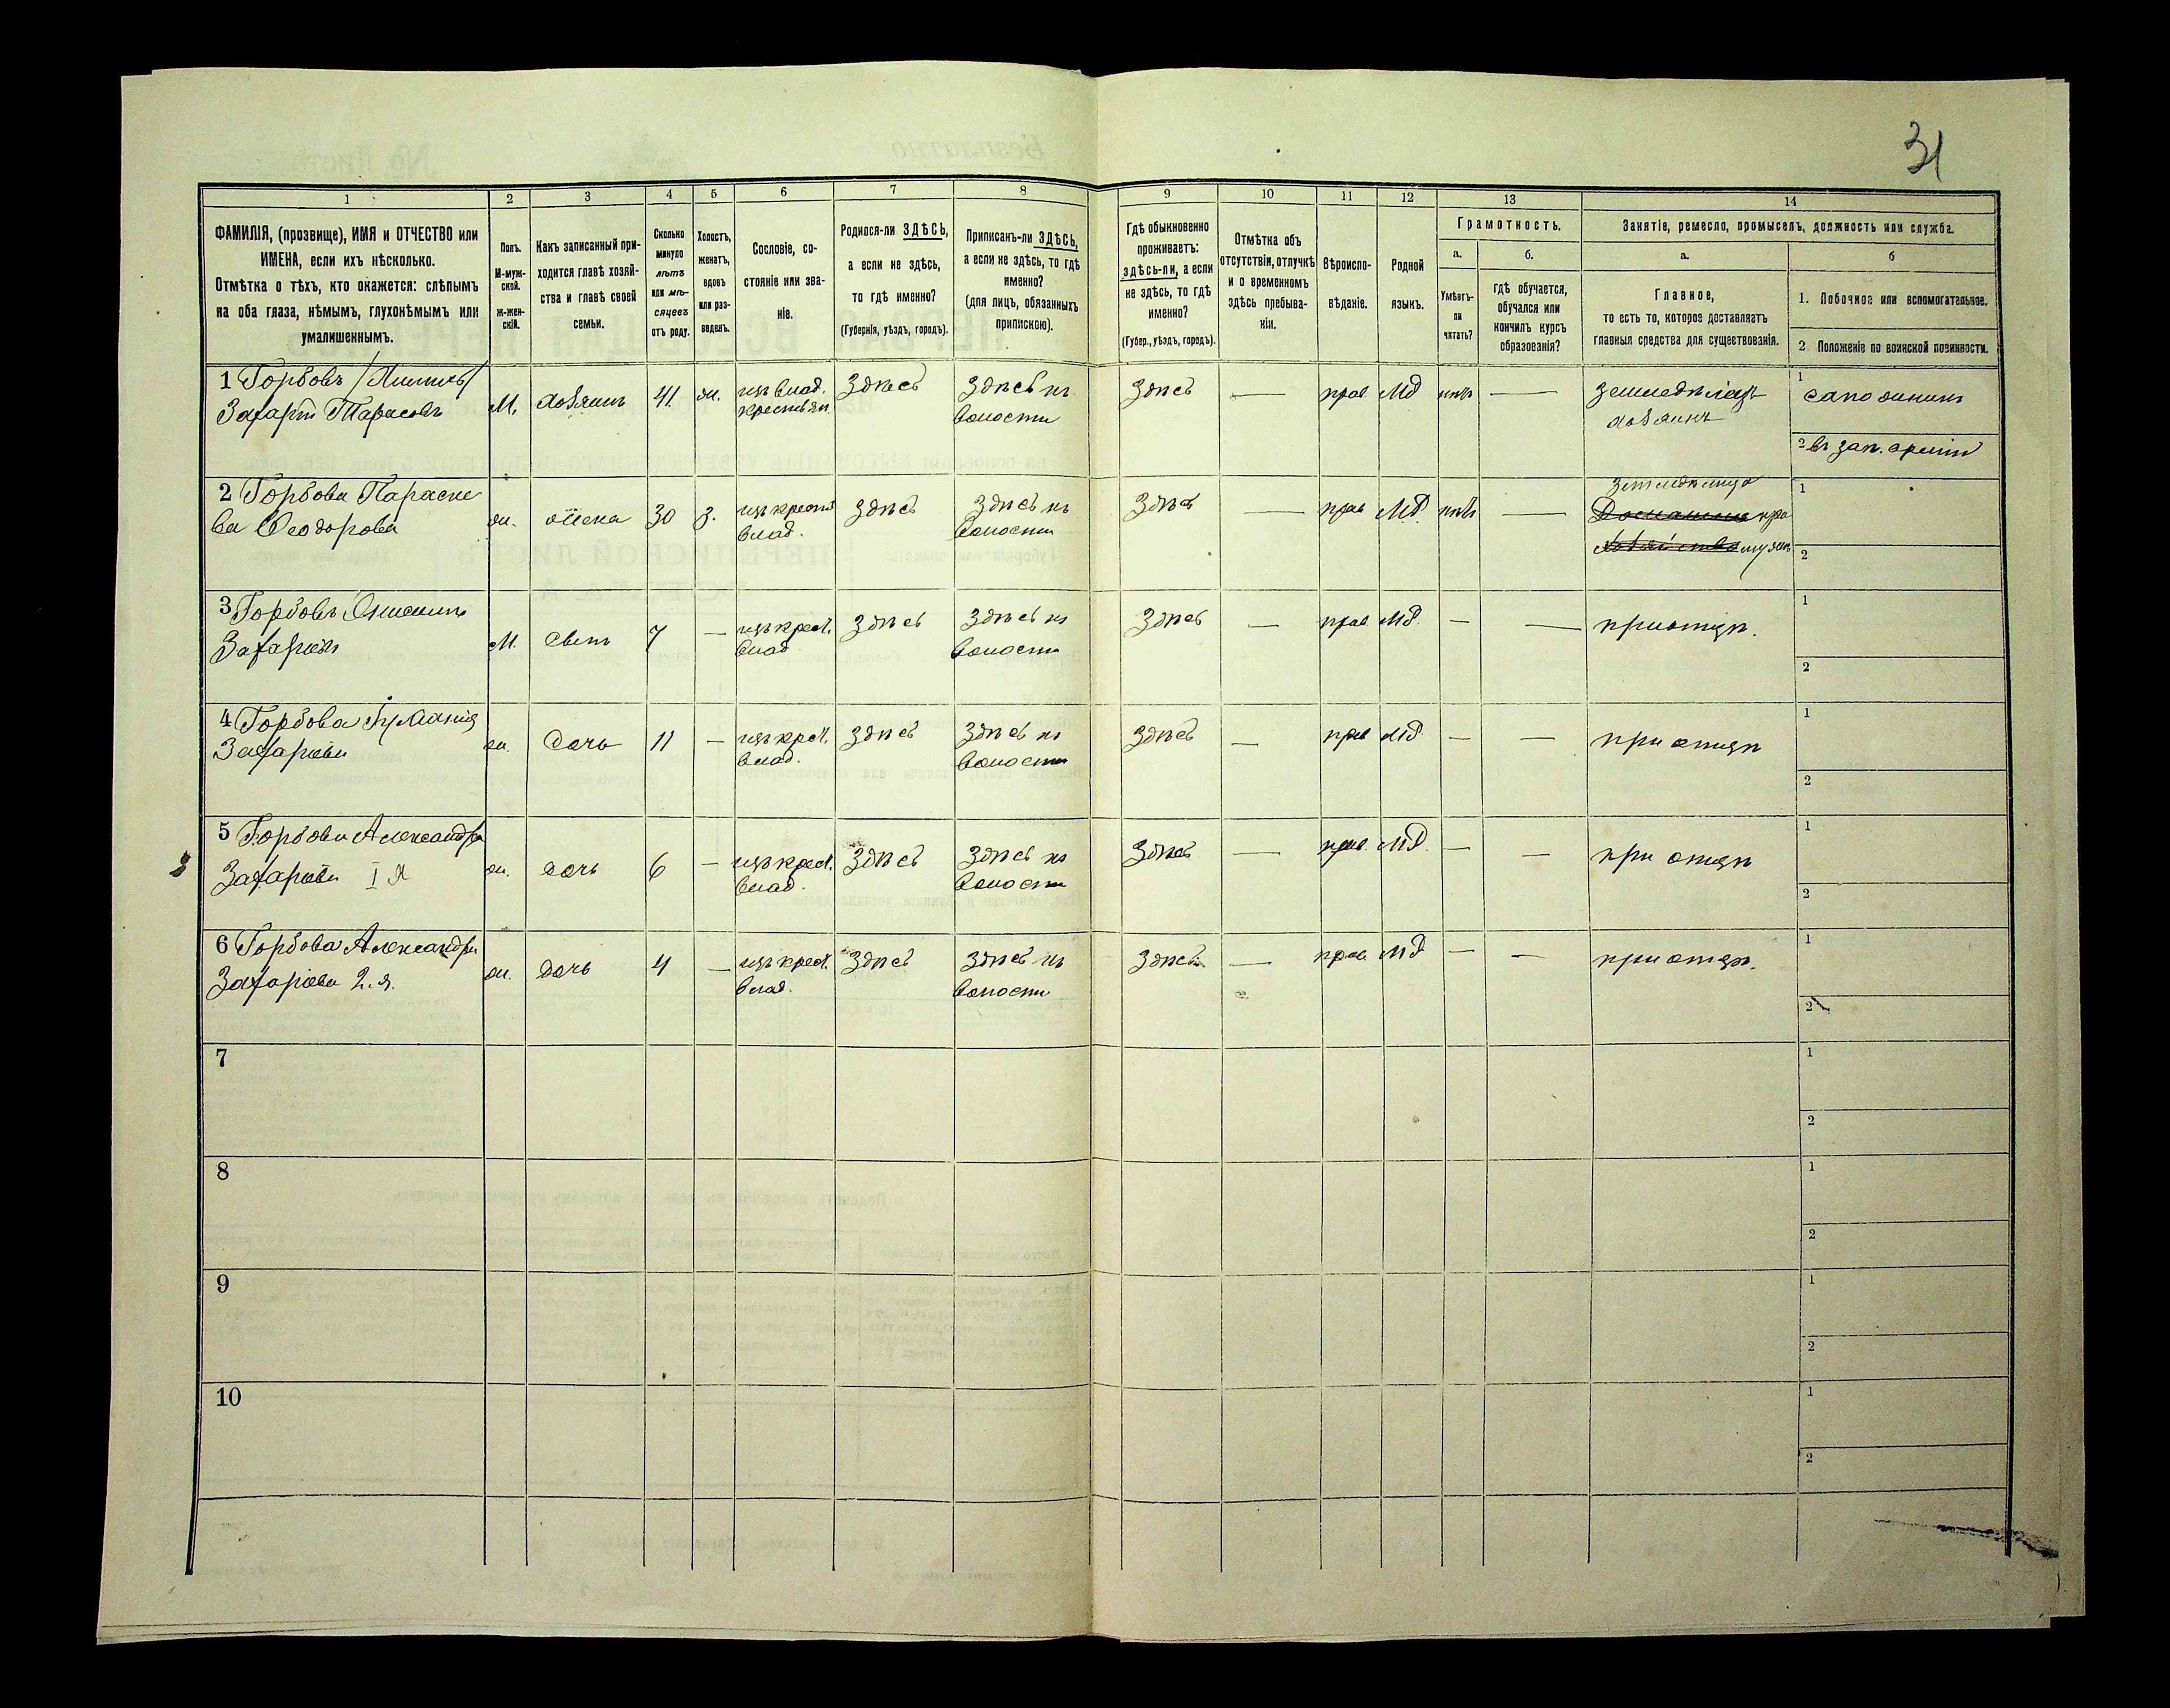 31
1 2 3 4 5 6 7 8 9 10 11 12 13 14
ФАМИЛІЯ, (прозвище), ИМЯ и ОТЧЕСТВО или
ИМЕНА, если ихъ нѣсколько.
Отмѣтка о тѣхъ, кто окажется: слѣпымъ
на оба глаза, нѣмымъ, глухонѣмымъ или
умалишеннымъ.
Полъ.
М-муж-
ской.
ж-жен-
скій.
Какъ записанный при-
ходится главѣ хозяй-
ства и главѣ своей
семьи.
Сколько
минуло
лѣтъ
или мѣ-
сяцевъ
отъ роду.
Холостъ,
женатъ,
вдовъ
или раз-
веденъ.
Сословіе, со-
стояніе или зва-
ніе.
Родился-ли ЗДѢСЬ,
а если не здѣсь,
то гдѣ именно?
(Губернія, уѣздъ, городъ).
Приписанъ-ли ЗДѢСЬ,
а если не здѣсь, то гдѣ
именно?
(для лицъ, обязанныхъ
припискою).
Гдѣ обыкновенно
проживаетъ:
здѣсь-ли, а если
не здѣсь, то гдѣ
именно?
(Губер., уѣздъ, городъ).
Отмѣтка объ
отсутствіи, отлучкѣ
и о временномъ
здѣсь пребыва-
ніи.
Вѣроиспо-
вѣданіе.
Родной
языкъ.
Грамотность.
а.
Умѣетъ-
ли
читать?
б.
Гдѣ обучается,
обучался или
кончилъ курсъ
образованія?
Занятіе, ремесло, промыселъ, должность или служба.
а.
Главное,
то есть то, которое доставляетъ
главныя средства для существованія.
б
1. Побочное или вспомогательное.
2 Положеніе по воинской повинности.
1 Горбовъ
Захарій Тарасовъ
М. хозяинъ 41. ж. изъ влад.
крестьян
Здѣсь Здѣсь къ
волости
Здѣсь — прав Мд нѣтъ —
земледѣлецъ
хозяинъ
1 сапожникъ
2 въ зап. арміи
2 Горбова Параске
ва Феодорова
ж. жена 30 з. изъ крест
влад.
здѣсь Здѣсь къ
волости
Здѣсь — прав Мд. нѣтъ —
1
2
3 Горбовъ
Захаріевъ
М. сынъ 7 — изъ крест.
влад
здѣсь Здѣсь къ
волости
Здѣсь — прав Мд. — — при отцѣ.
1
2
4 Горбова
Захаріева
ж. дочь 11 — изъ крест.
влад.
здѣсь Здѣсь къ
волости
Здѣсь — прав Мд — — при отцѣ
1
2
5 Горбова Александра
Захаріева I я
ж. дочь 6 — изъ крест.
влад.
Здѣсь Здѣсь къ
волости
Здѣсь — прав. Мд. — — при отцѣ
1
2
6 Горбова Александра
Захаріева 2.я.
ж. дочь 4 — изъ крест.
влад.
Здѣсь Здѣсь къ
волости
Здѣсь — прав Мд — — при отцѣ.
1
2
7
1
2
8
1
2
9
1
2
10
1
2